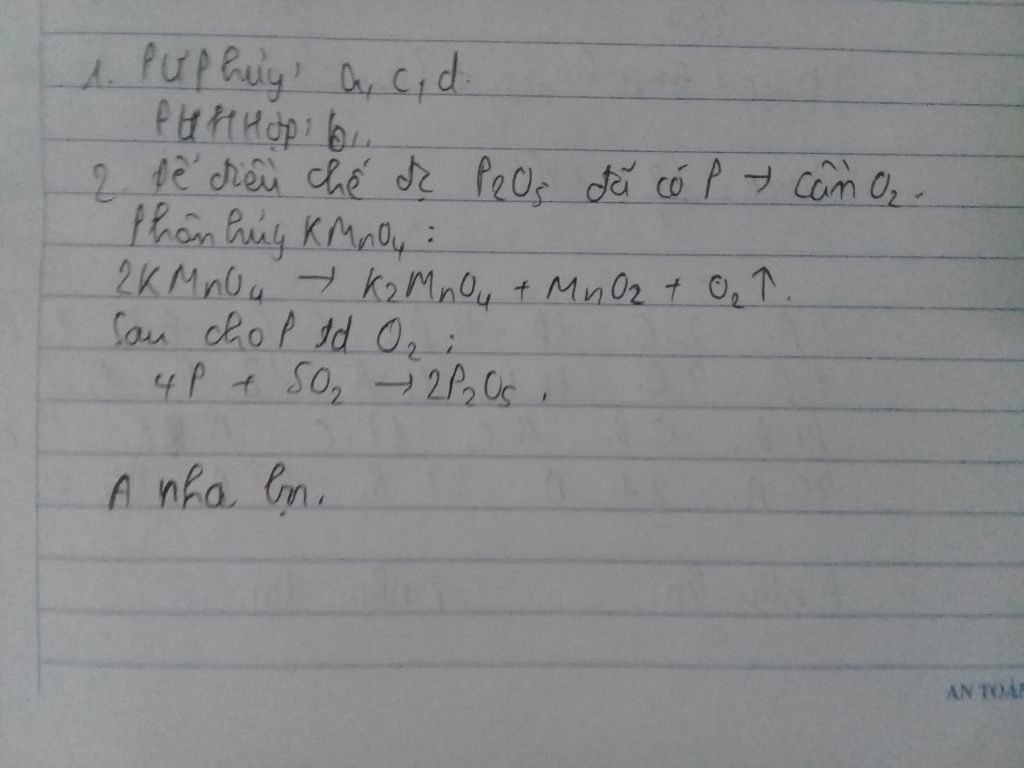 1. PƯPhủy: a, c, d.
PƯHHợp: b,.
2. Để điều chế đc P₂O₅ đã có P → cần O₂.
Phân hủy KMnO₄:
2KMnO₄ → K₂MnO₄ + MnO₂ + O₂↑.
Sau cho P td O₂:
4P + 5O₂ → 2P₂O₅.
A nha bn.
AN TOÀN